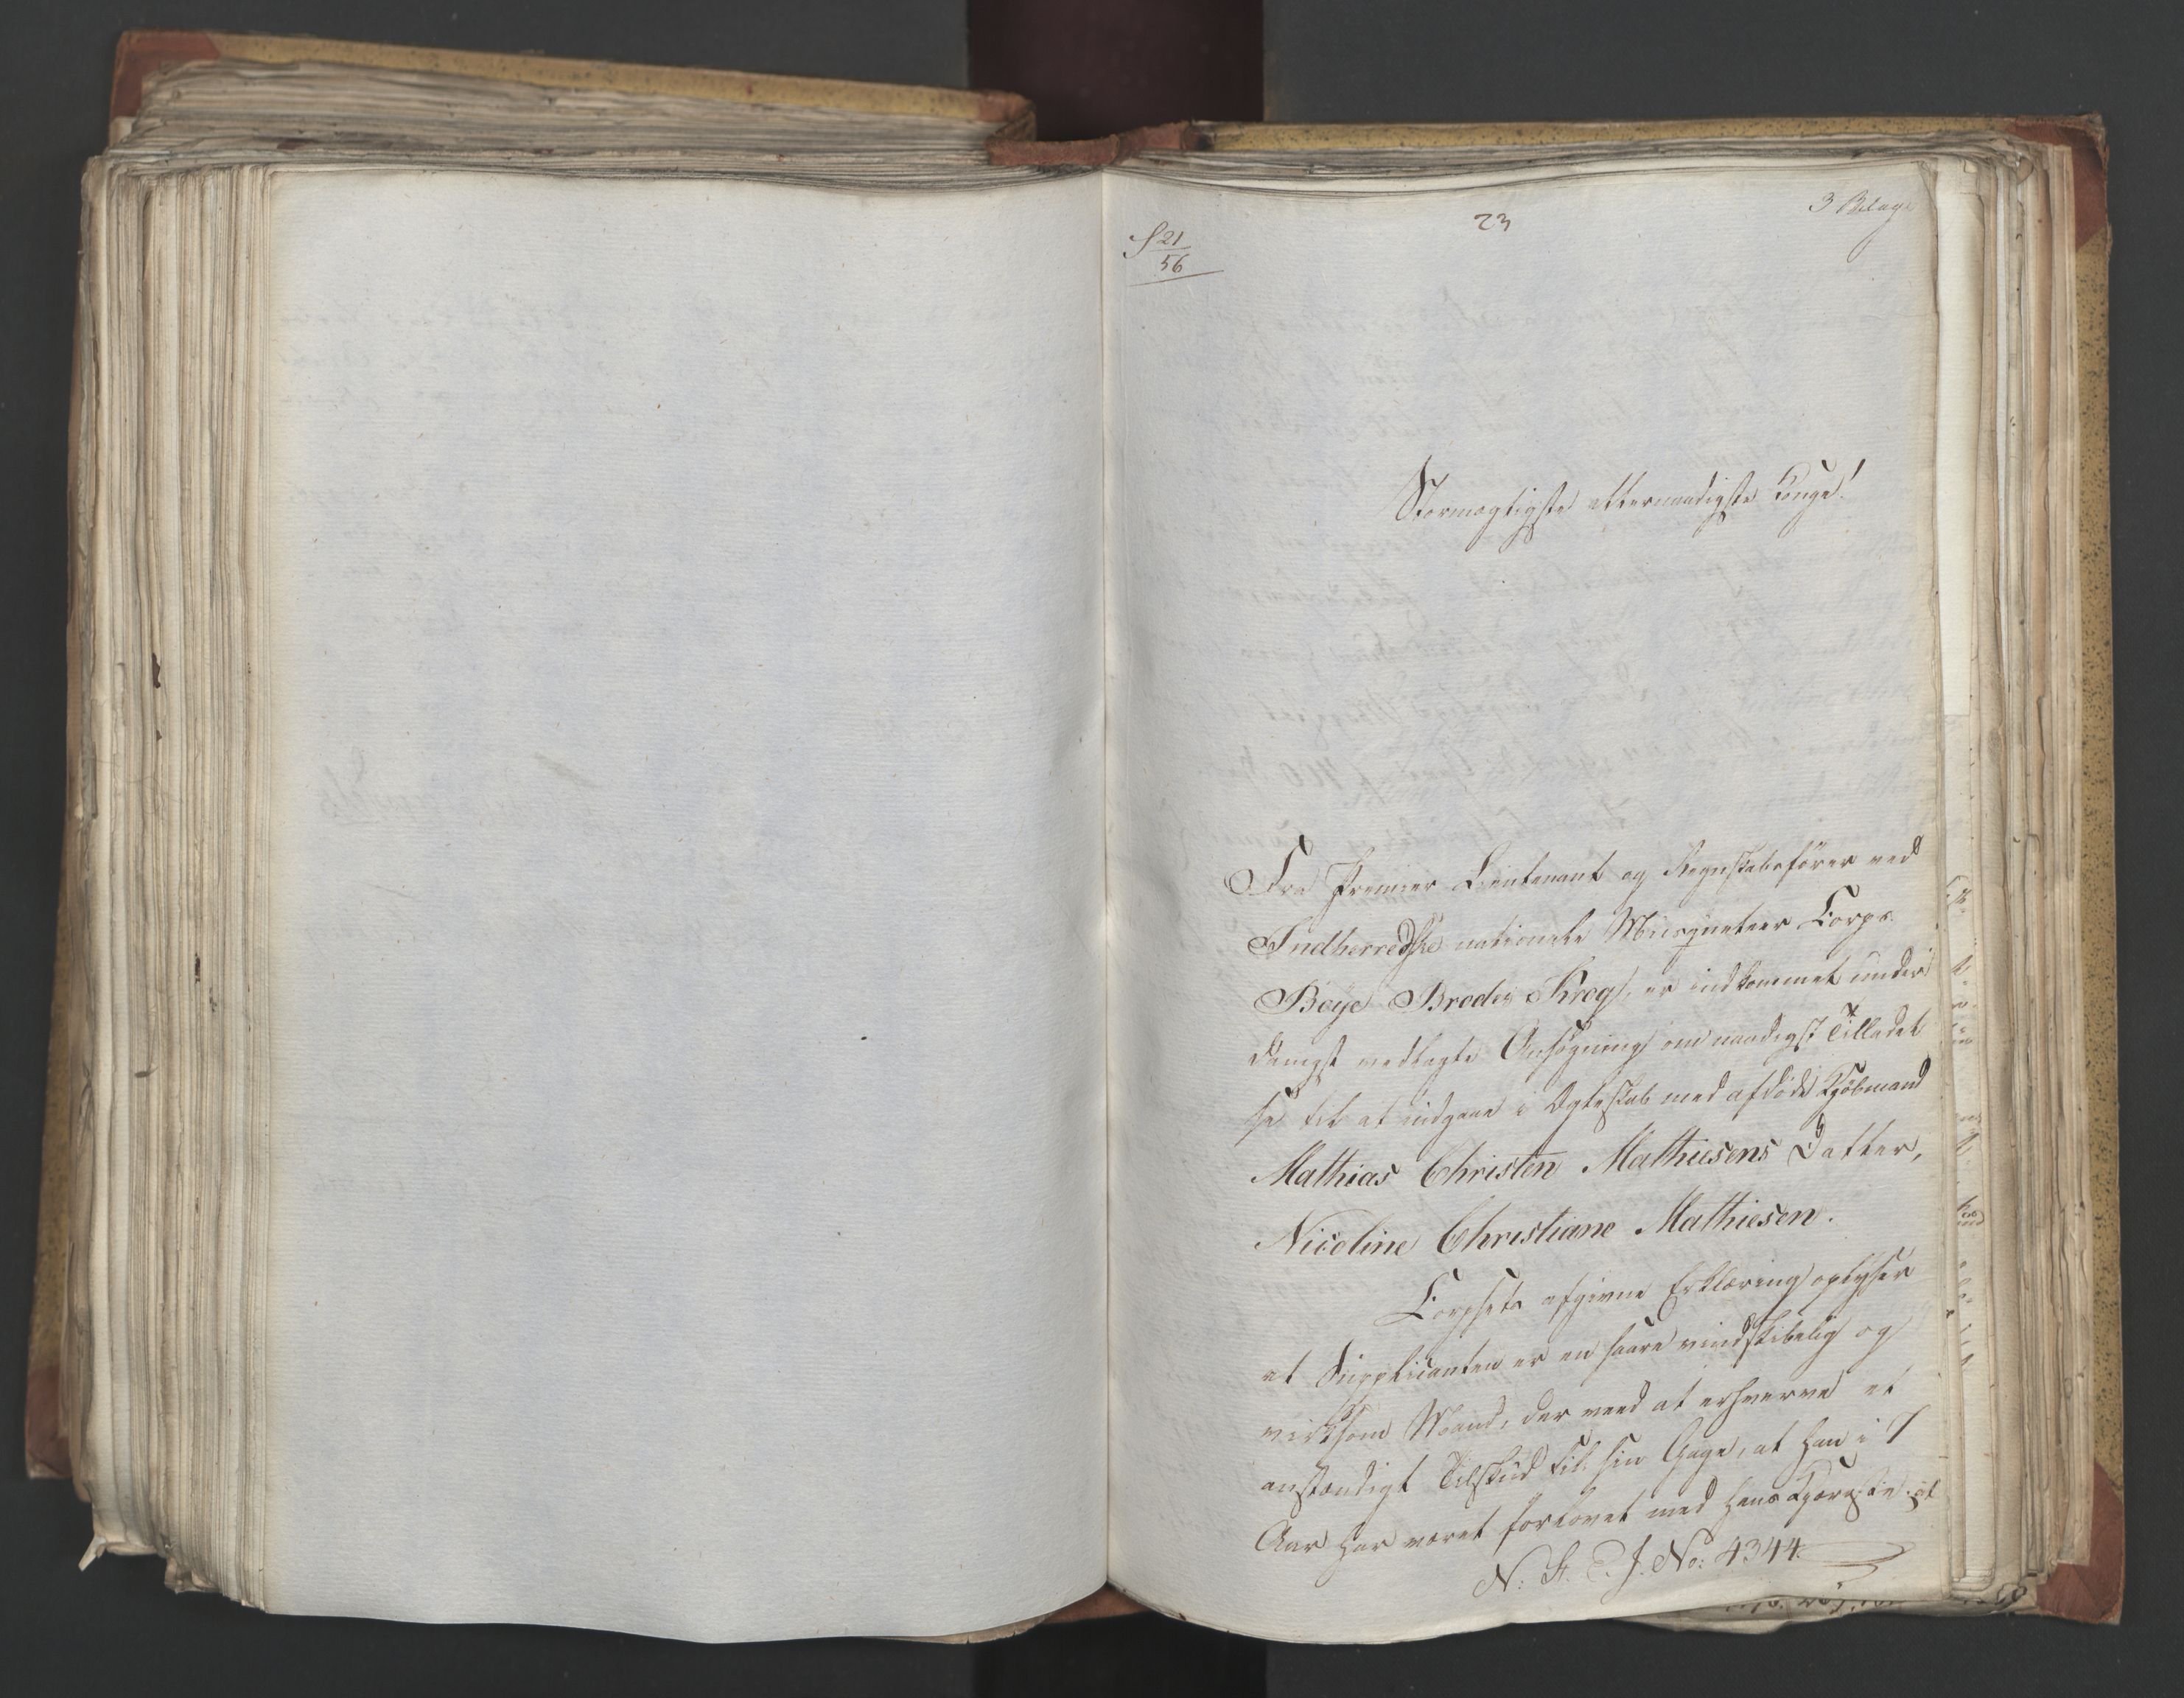 23
3 Bilage
S 21
56
Stormægtigste allernaadigste Konge!
Fra Premier Lieutenant og Regnskabsfører ved
Indherredske nationale Musqueteer Corps
Boye Broder Krog, er indkommet under
danigst vedlagte Ansøgning om naadigst Tilladel
se til at indgaae i Ægteskab med afdøde Kjøbmand
Mathias Christen Mathiesens Datter,
Nicoline Christiane Mathiesen.
Corpsets afgivne Erklæring oplyser
at Supplicanten er en saare vindskibelig og
virksom Mand, der veed at erhverve et
anstændigt Tilskud til sin Gage, at han i 7
Aar har været forlovet med hans Kjæreste; at
N: St. C. J. No: 4344.